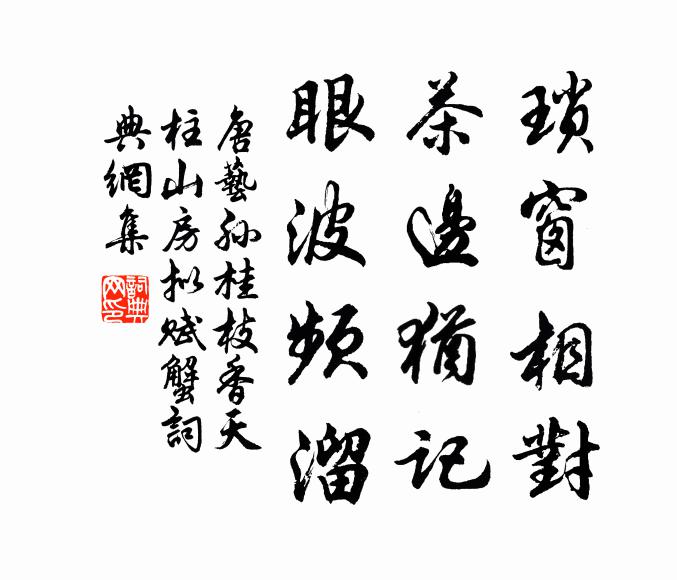 瑣窗相對
茶邊猶記
眼波頻溜
唐藝孫桂枝香天
柱山房拟賦蟹詞
典網集
詞典網印